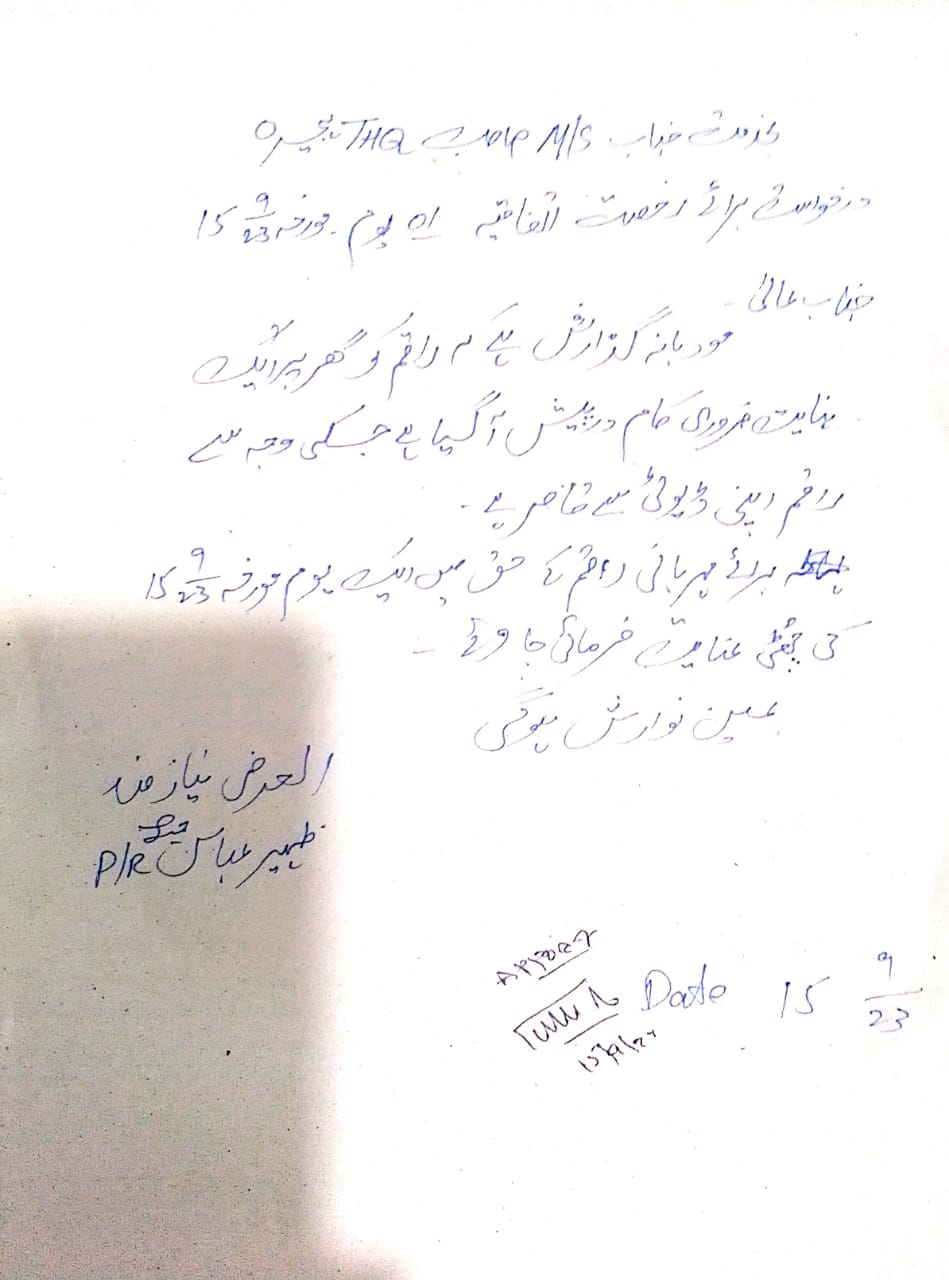 بخدمت جناب M/S صاحب THQ بھیرہ
درخواست برائے رخصت اتفاقیہ 01 یوم۔ مورخہ 15 9/23
جناب عالیٰ۔
مودبانہ گذارش ہے کہ راقم کو گھر پر ایک
نہایت ضروری کام درپیش آ گیا ہے جسکی وجہ سے
راقم اپنی ڈیوٹی سے قاصر ہے۔
برائے مہربانی راقم کے حق میں ایک یوم مورخہ 15 9/23
کی چھٹی عنایت فرمائی جاوے۔
عین نوازش ہوگی
العرض نیازمند
ظہیر عباس P/R
Date 15 9/23